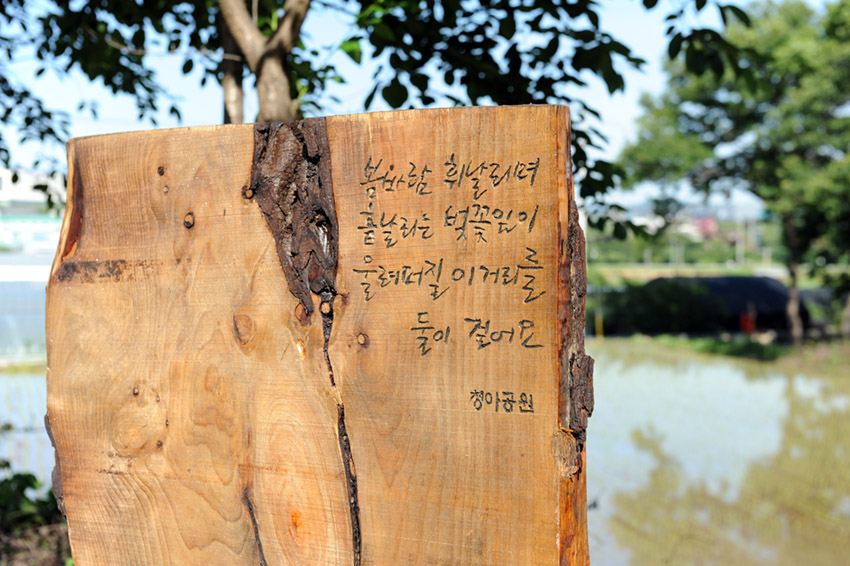 봄바람 휘날리며
흩날리는 벚꽃잎이
울려퍼질 이 거리를
둘이 걸어요
청아공원